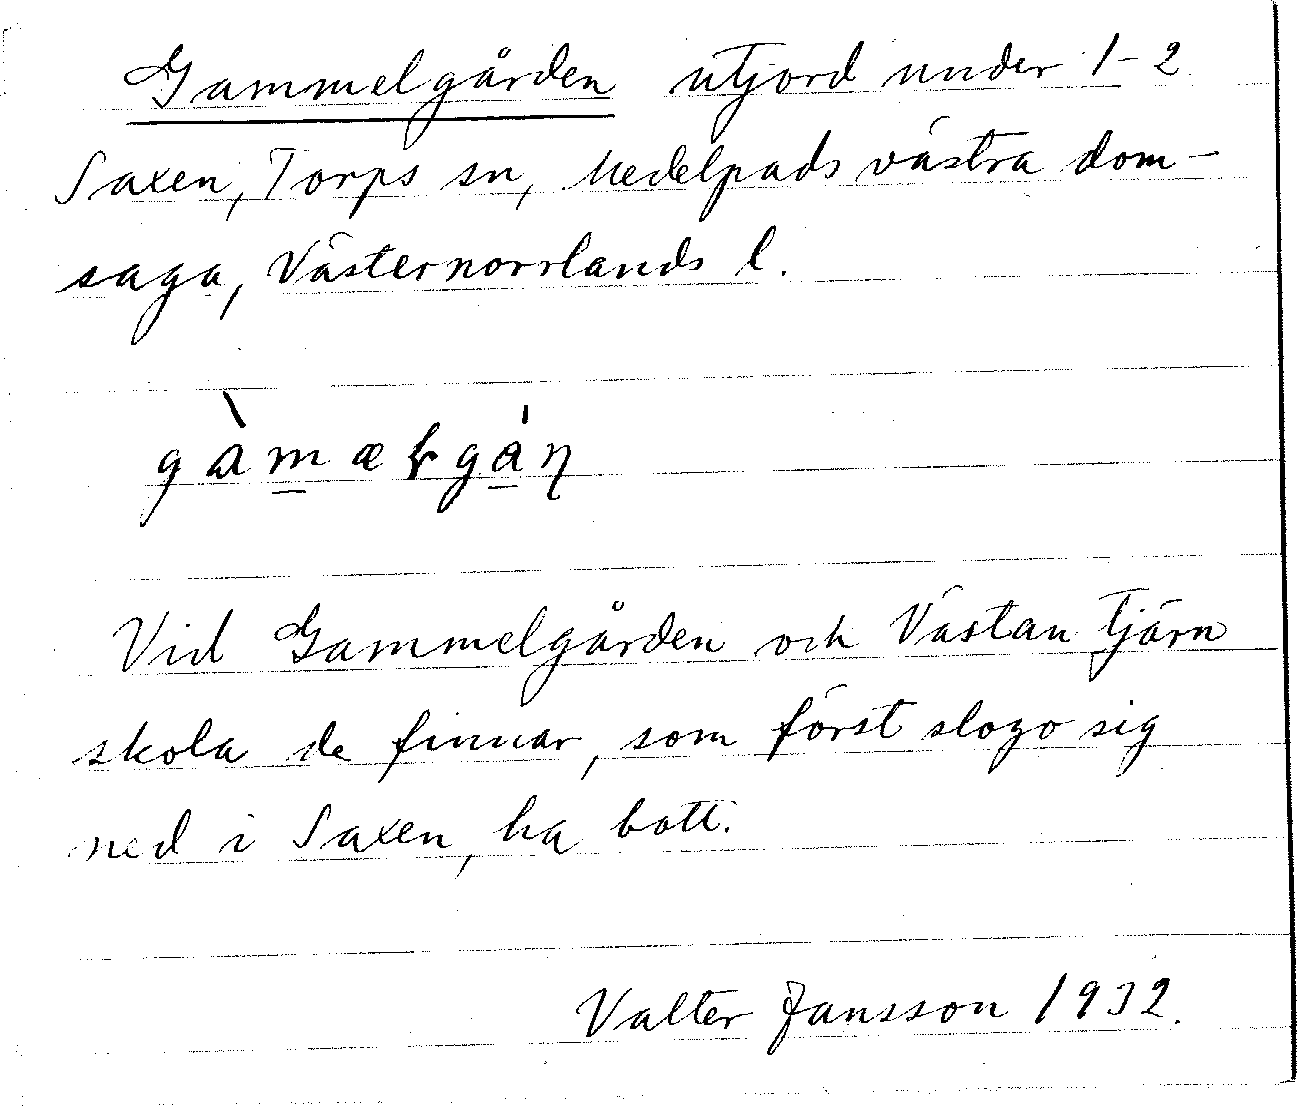 Gammelgården utjord under 1-2
Saxen, Torps sn, Medelpads västra dom-
saga, Västernorrlands l.
gàmæɫgán
Vid Gammelgården och Västantjärn
skola de finnar, som först slogo sig
ned i Saxen, ha bott.
Valter Jansson 1932.